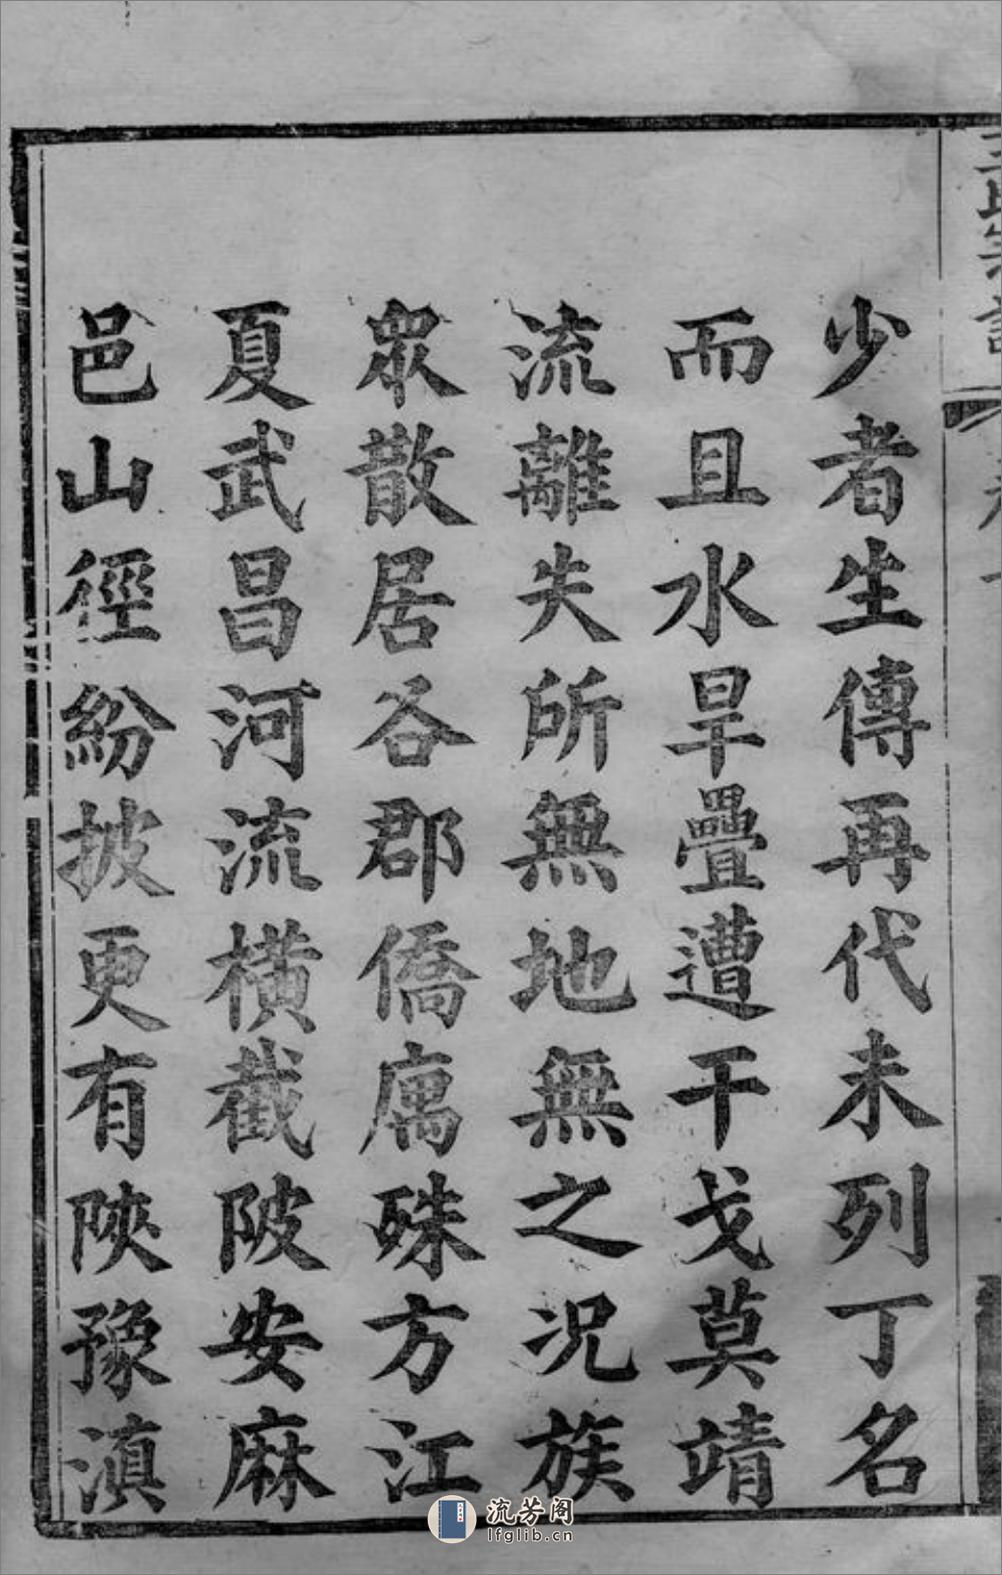 少者生傳再代未列丁名
而且水旱疊遭干戈莫靖
流離失所無地無之況族
眾散居各郡僑寓殊方江
夏武昌河流橫截陂安麻
邑山徑紛披更有陝豫滇
流芳阁
lfglib.cn